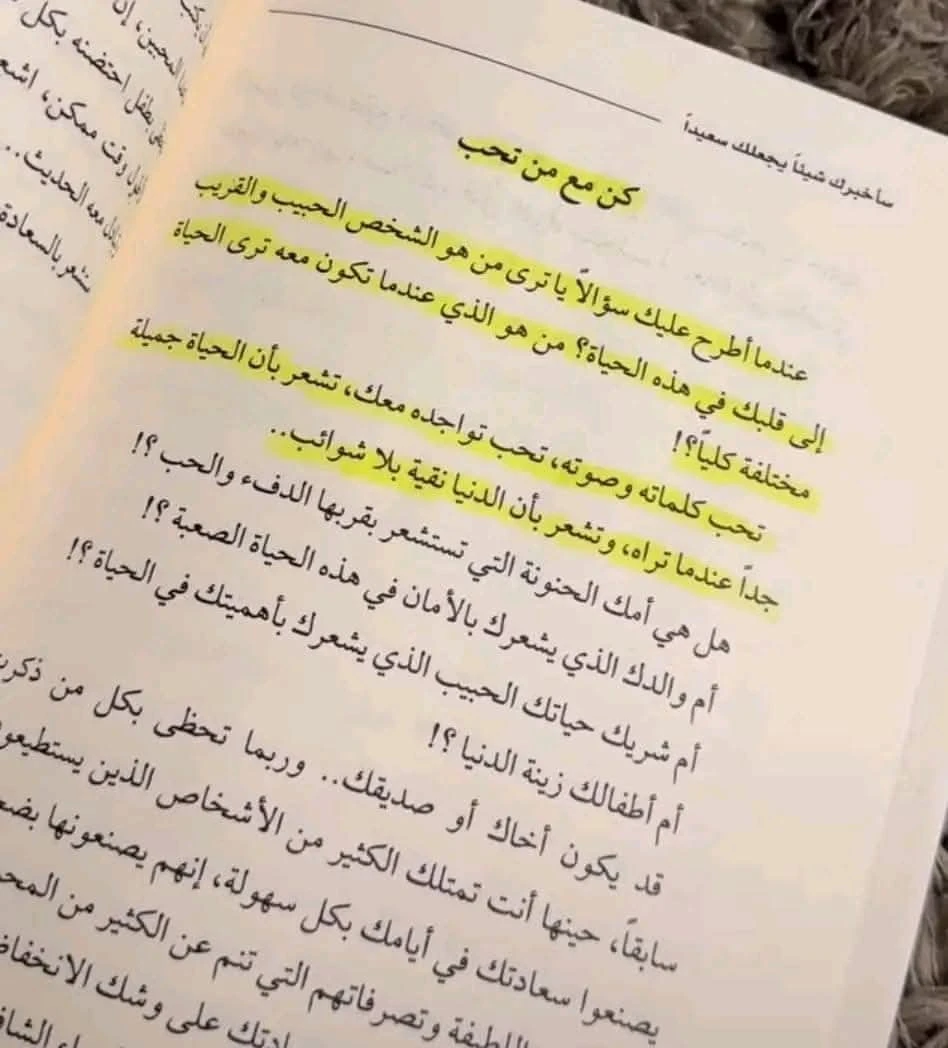 سأخبرك شيئاً يجعلك سعيداً
كن مع من تحب
عندما أطرح عليك سؤالاً يا ترى من هو الشخص الحبيب والقريب
إلى قلبك في هذه الحياة؟ من هو الذي عندما تكون معه ترى الحياة
مختلفة كلياً؟!
تحب كلماته وصوته، تحب تواجده معك، تشعر بأن الحياة جميلة
جداً عندما تراه، وتشعر بأن الدنيا نقية بلا شوائب..
هل هي أمك الحنونة التي تستشعر بقربها الدفء والحب؟!
أم والدك الذي يشعرك بالأمان في هذه الحياة الصعبة؟!
أم شريك حياتك الحبيب الذي يشعرك بأهميتك في الحياة؟!
أم أطفالك زينة الدنيا؟!
قد يكون أخاك أو صديقك.. وربما تحظى بكل من
سابقاً، حينها أنت تمتلك الكثير من الأشخاص الذين
يصنعوا سعادتك في أيامك بكل سهولة، إنهم يصنعونها
اللطيفة وتصرفاتهم التي تنم عن الكثير من
على وشك
المحبين، إن
بطفل احتضنه بكل
وقت ممكن،
معه الحديث..
بالسعادة